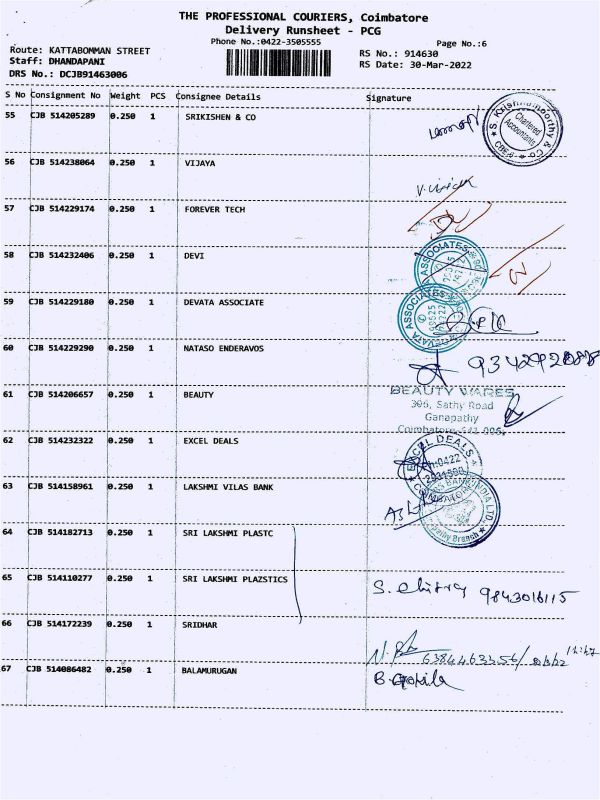 THE PROFESSIONAL COURIERS, Coimbatore
Delivery Runsheet - PCG
Phone No.:0422-3505555
Page No.:6
Route: KATTABOMMAN STREET
Staff: DHANDAPANI
DRS No.: DCJB91463006
RS No.: 914630
RS Date: 30-Mar-2022
S No Consignment No Weight PCS Consignee Details Signature
55 CJB 514205289 0.250 1 SRIKISHEN & CO
S. Krishnamoorthy & Co
Chartered
Accountants
CBE-6
56 CJB 514238064 0.250 1 VIJAYA
57 CJB 514229174 0.250 1 FOREVER TECH
58 CJB 514232406 0.250 1 DEVI
ASSOCIATES
59 CJB 514229180 0.250 1 DEVATA ASSOCIATE
DEVATA ASSOCIATES
60 CJB 514229290 0.250 1 NATASO ENDERAVOS
61 CJB 514206657 0.250 1 BEAUTY
BEAUTY WARES
306, Sathy Road
Ganapathy
Coimbatore-641 006.
62 CJB 514232322 0.250 1 EXCEL DEALS
EXCEL DEALS
63 CJB 514158961 0.250 1 LAKSHMI VILAS BANK
BANK INDIA LTD.
Branch
64 CJB 514182713 0.250 1 SRI LAKSHMI PLASTC
65 CJB 514110277 0.250 1 SRI LAKSHMI PLAZSTICS
S. Chitra 9843016115
66 CJB 514172239 0.250 1 SRIDHAR
6384463356/
67 CJB 514086482 0.250 1 BALAMURUGAN
B. Gokila